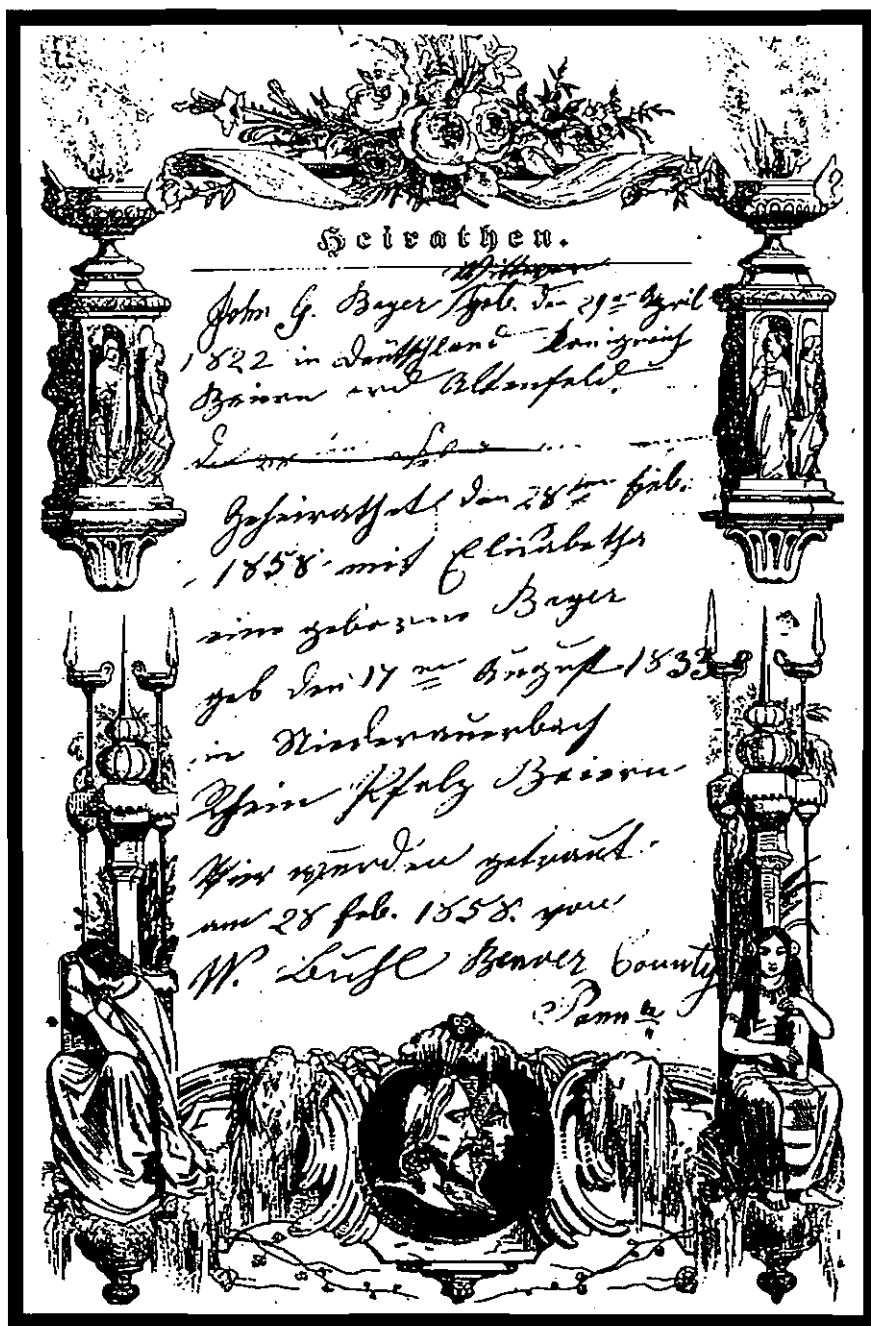 Heirathen.
Wittwer
John G. Beyer geb. den 29ten April
1822 in Deutschland Konigreich
Beiern ord Altenfeld.
Geheirathet den 28ten Feb.
1858 mit Elisabetha
eine geborene Beyer
geb den 17ten August 1833
in Niederauerbach
Rhein Pfalz Beiern
Wier wurden getraut
am 28 Feb. 1858. von
W. Buhl Beaver County
Penn